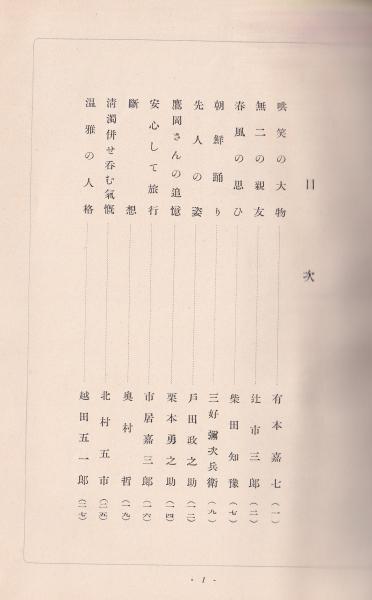 目次
哄笑の大物 有本嘉七（一）
無二の親友 辻市三郎（二）
春風の思ひ 柴田知豫（七）
朝鮮踊り 三好彌次兵衛（九）
先人の姿 戸田政之助（一二）
鷹岡さんの追憶 栗本勇之助（一四）
安心して旅行 市居嘉三郎（一六）
斷想 奥村哲（一九）
清濁併せ呑む氣慨 北村五市（二五）
温雅の人格 越田五一郎（二七）
- 1 -